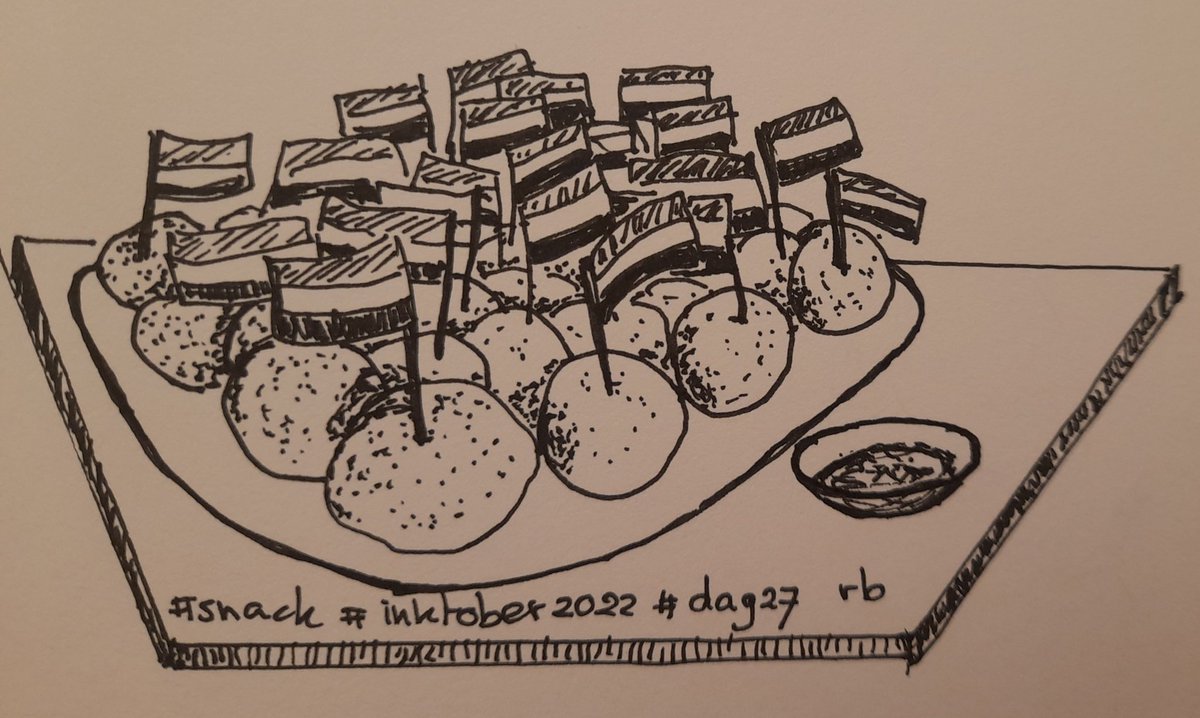 #snack # inktober 2022 # dag27 rb